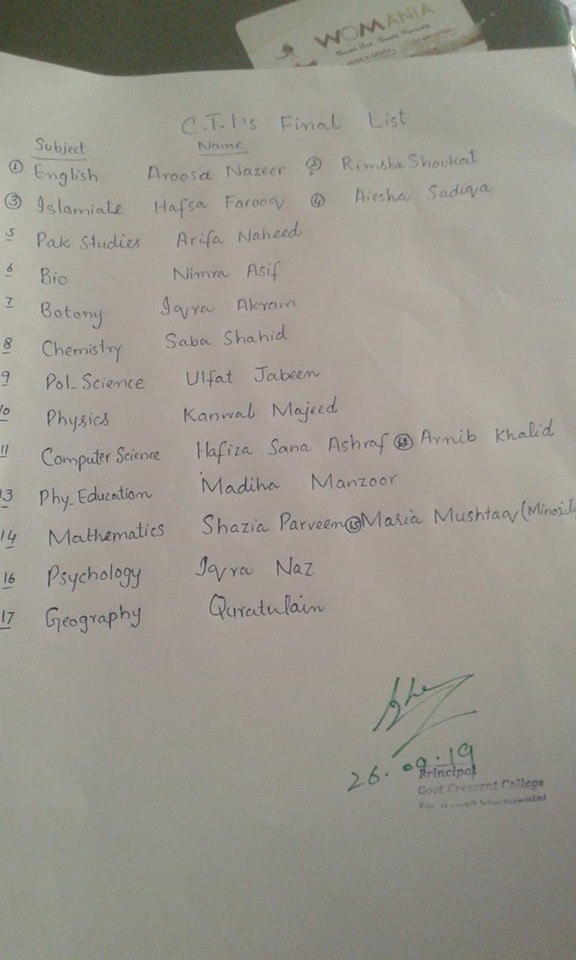 WOMANIA
C.T.I's Final List
Subject Name
① English Aroosa Nazeer ② Rimsha Shoukat
③ Islamiate Hafsa Farooq ④ Aiesha Sadiqa
5 Pak Studies Arifa Naheed
6 Bio Nimra Asif
7 Botony Iqra Akram
8 Chemistry Saba Shahid
9 Pol_Science Ulfat Jabeen
10 Physics Kanwal Majeed
11 Computer Science Hafiza Sana Ashraf Arnib Khalid
13 Phy_Education Madiha Manzoor
14 Mathematics Shazia Parveen ⑮ Maria Mushtaq
16 Psychology Iqra Naz
17 Geography Quratulain
26.09.19
Principal
Govt Crescent College
For